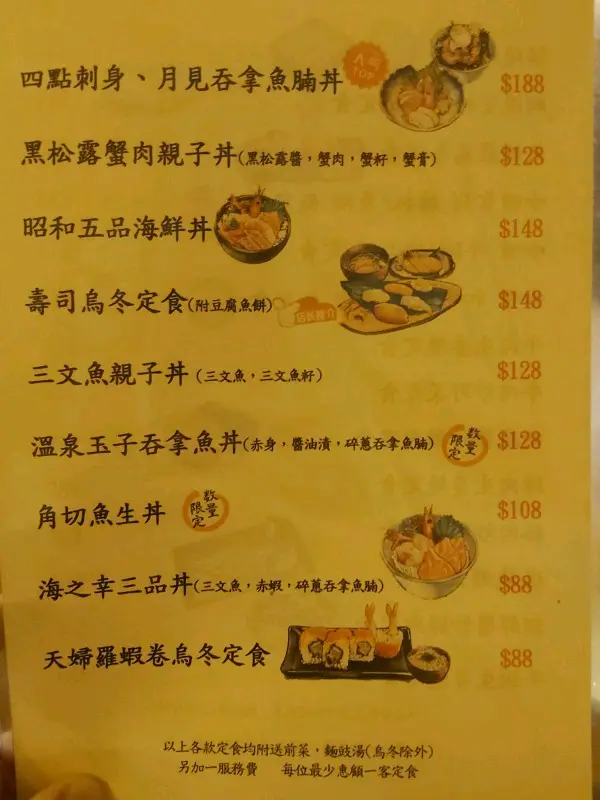 四點刺身、月見吞拿魚腩丼 $188
人氣 TOP
黑松露蟹肉親子丼(黑松露醬，蟹肉，蟹籽，蟹膏) $128
昭和五品海鮮丼 $148
壽司烏冬定食(附豆腐魚餅) $148
店長推介
三文魚親子丼 (三文魚，三文魚籽) $128
溫泉玉子吞拿魚丼(赤身，醬油漬，碎蔥吞拿魚腩) 数量限定 $128
角切魚生丼 数量限定 $108
海之幸三品丼(三文魚，赤蝦，碎蔥吞拿魚腩) $88
天婦羅蝦卷烏冬定食 $88
以上各款定食均附送前菜，麵豉湯(烏冬除外)
另加一服務費 每位最少惠顧一客定食